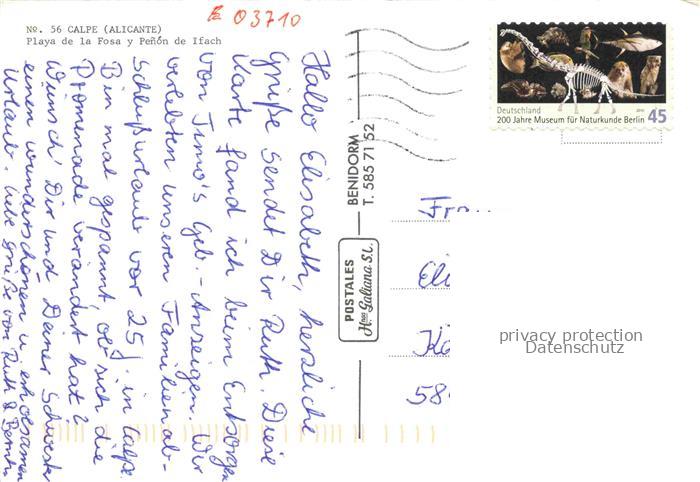 №. 56 CALPE (ALICANTE)
Playa de la Fosa y Peñón de Ifach
03710
Hallo Elisabeth, herzliche
Grüße sendet Dir Ruth. Diese
Karte fand ich beim Entsorgen
von Timo's Geb.-Anzeigen. Wir
verlebten unseren Familien ab-
schlußurlaub vor 25 J. in Calpe.
Bin mal gespannt ob sich die
Promenade verändert hat?
Wünsch' Dir und Deiner Schwester
einen wunderschönen u. erholsamen
Urlaub. Liebe Grüße von Ruth &
BENIDORM -
T. 585 71 52
POSTALES
Hnos Galiana S.L.
Deutschland
200 Jahre Museum für Naturkunde Berlin 45
Fr
Eli
58
privacy protection
Datenschutz